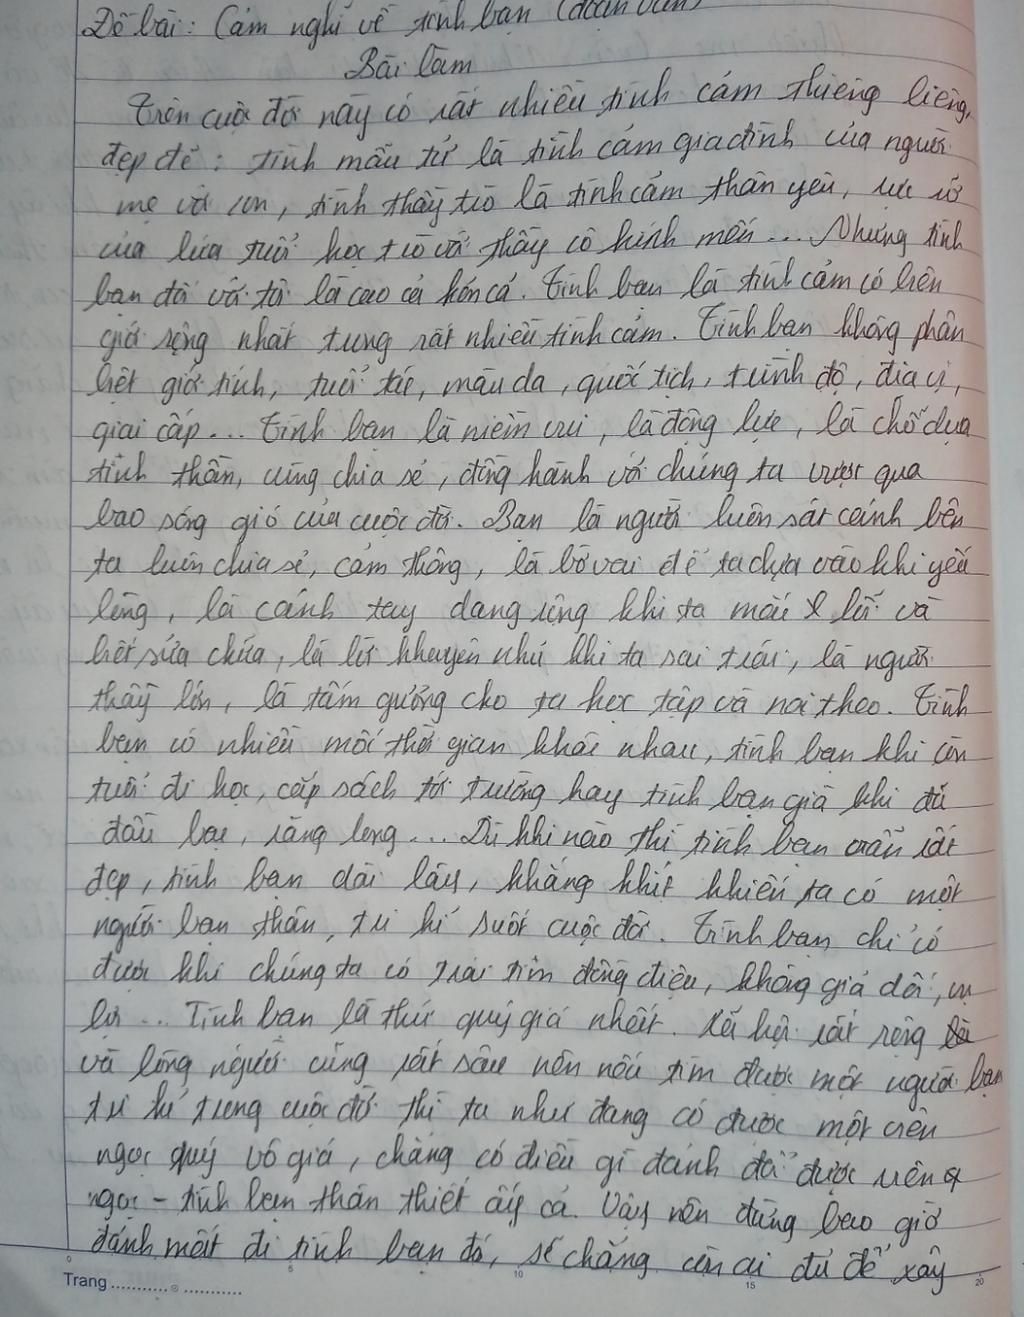 Đề bài: Cảm nghĩ về tình bạn (đoạn văn)
Bài làm
Trên cuộc đời này có rất nhiều tình cảm thiêng liêng,
đẹp đẽ: tình mẫu tử là tình cảm gia đình của người
mẹ với con, tình thầy trò là tình cảm thân yêu, rực rỡ
của lứa tuổi học trò với thầy cô kính mến... Nhưng tình
bạn đối với tôi là cao cả hơn cả. Tình bạn là tình cảm có biên
giới rộng nhất trong rất nhiều tình cảm. Tình bạn không phân
biệt giới tính, tuổi tác, màu da, quốc tịch, trình độ, địa vị,
giai cấp... Tình bạn là niềm vui, là động lực, là chỗ dựa
tinh thần, cùng chia sẻ, đồng hành với chúng ta vượt qua
bao sóng gió của cuộc đời. Bạn là người luôn sát cánh bên
ta luôn chia sẻ, cảm thông, là bờ vai để ta dựa vào khi yếu
lòng, là cánh tay dang rộng khi ta mắc lỗi và
biết sửa chữa, là lời khuyên nhủ khi ta sai trái, là người
thầy lớn, là tấm gương cho ta học tập và noi theo. Tình
bạn có nhiều mốc thời gian khác nhau, tình bạn khi còn
tuổi đi học, cắp sách tới trường hay tình bạn già khi đã
đầu bạc, răng long... Dù khi nào thì tình bạn vẫn rất
đẹp, tình bạn dài lâu, khăng khít khiến ta có một
người bạn thân, tri kỉ suốt cuộc đời. Tình bạn chỉ có
được khi chúng ta có trái tim đồng điệu, không giả dối, vụ
lợi... Tình bạn là thứ quý giá nhất. Xã hội rất rộng
và lòng người cũng rất sâu nên nếu tìm được một người bạn
tri kỉ trong cuộc đời thì ta như đang có được một viên
ngọc quý vô giá, chẳng có điều gì đánh đổi được viên
ngọc - tình bạn thân thiết ấy cả. Vậy nên đừng bao giờ
đánh mất đi tình bạn đó, sẽ chẳng còn ai đủ để xây
Trang
0 5 10 15 20